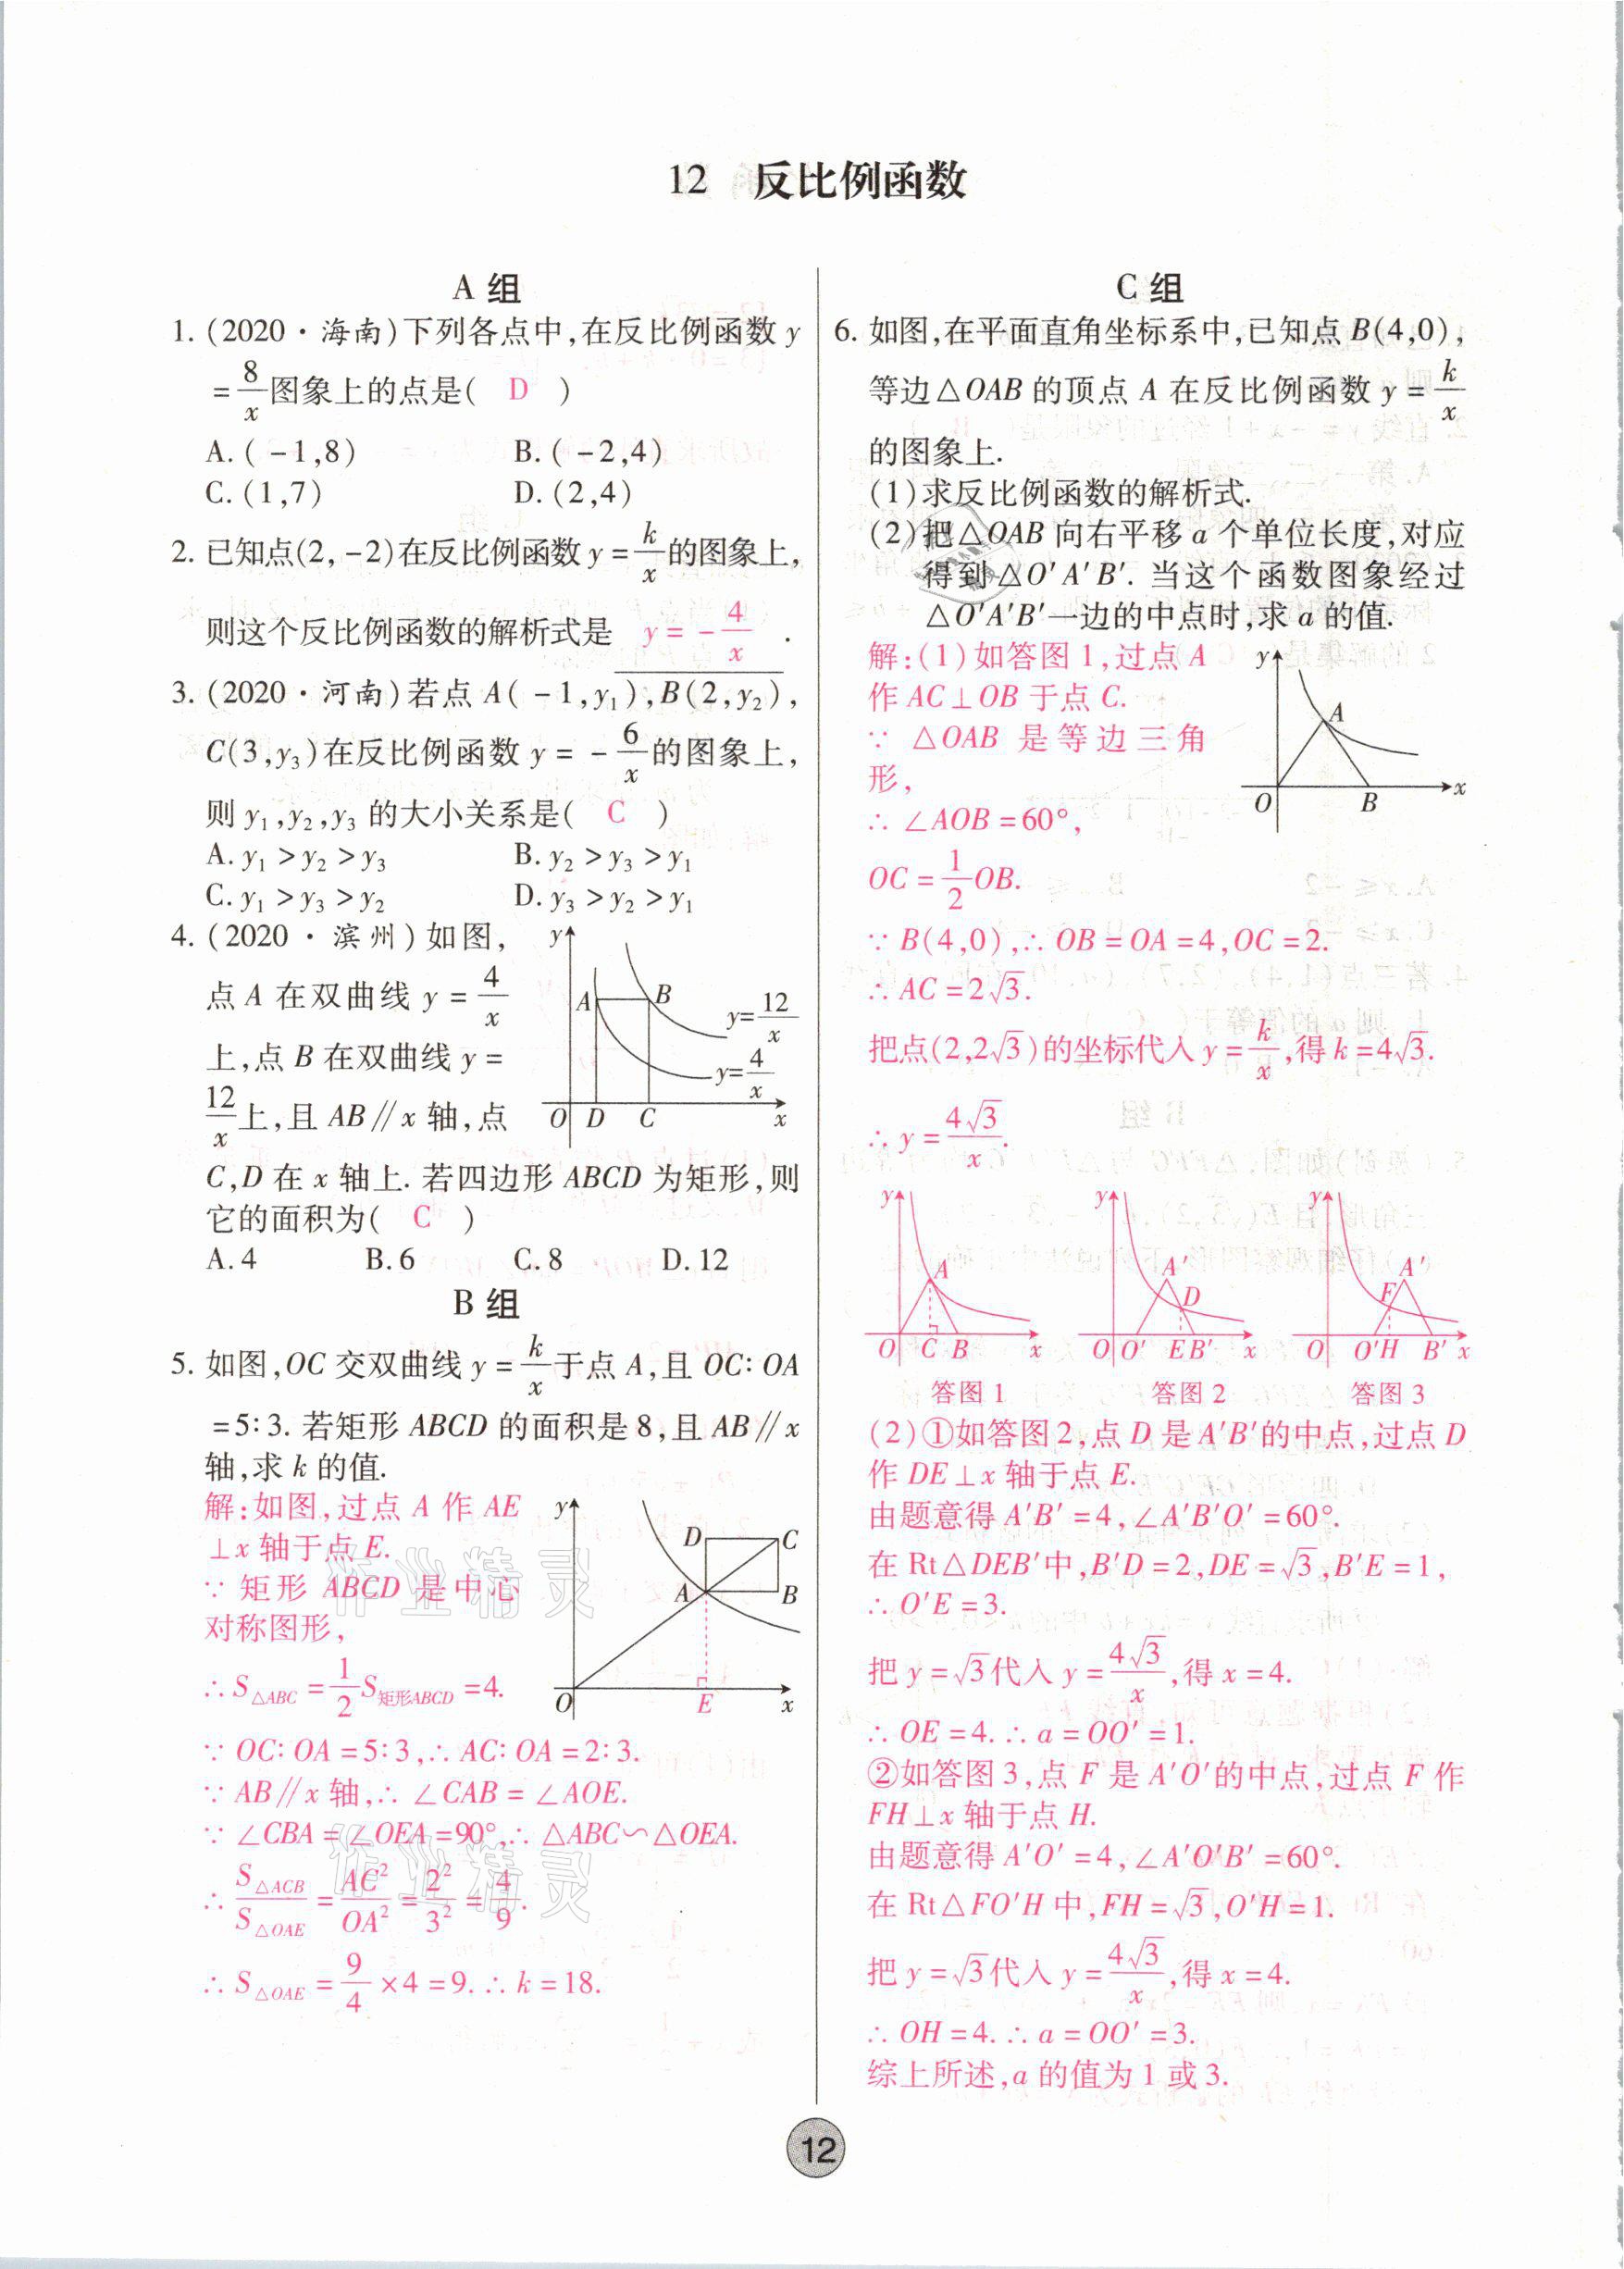 12 反比例函数
A 组
1. (2020·海南)下列各点中,在反比例函数 y
=8/x图象上的点是( D )
A. (-1,8) B. (-2,4)
C. (1,7) D. (2,4)
2. 已知点(2,-2)在反比例函数 y=k/x的图象上,
则这个反比例函数的解析式是 y=-4/x .
3. (2020·河南)若点 A(-1,y₁),B(2,y₂),
C(3,y₃)在反比例函数 y=-6/x的图象上,
则 y₁,y₂,y₃ 的大小关系是( C )
A. y₁>y₂>y₃ B. y₂>y₃>y₁
C. y₁>y₃>y₂ D. y₃>y₂>y₁
4. (2020·滨州)如图,
点 A 在双曲线 y=4/x
上,点 B 在双曲线 y=
12/x上,且 AB∥x 轴,点
C,D 在 x 轴上. 若四边形 ABCD 为矩形,则
它的面积为( C )
A. 4 B. 6 C. 8 D. 12
y
A B
y=12/x
y=4/x
O D C x
B 组
5. 如图,OC 交双曲线 y=k/x于点 A,且 OC∶OA
=5∶3. 若矩形 ABCD 的面积是 8,且 AB∥x
轴,求 k 的值.
解:如图,过点 A 作 AE
⊥x 轴于点 E.
∵ 矩形 ABCD 是中心
对称图形,
∴ S△ABC=1/2S矩形ABCD=4.
∵ OC∶OA=5∶3,∴ AC∶OA=2∶3.
∵ AB∥x 轴,∴ ∠CAB=∠AOE.
∵ ∠CBA=∠OEA=90°,∴ △ABC∽△OEA.
∴ S△ACB/S△OAE=AC²/OA²=2²/3²=4/9.
∴ S△OAE=9/4×4=9. ∴ k=18.
y
D C
A B
O E x
作业精灵
作业精灵
C 组
6. 如图,在平面直角坐标系中,已知点 B(4,0),
等边△OAB 的顶点 A 在反比例函数 y=k/x
的图象上.
(1)求反比例函数的解析式.
(2)把△OAB 向右平移 a 个单位长度,对应
得到△O′A′B′. 当这个函数图象经过
△O′A′B′一边的中点时,求 a 的值.
解:(1)如答图 1,过点 A
作 AC⊥OB 于点 C.
∵ △OAB 是等边三角
形,
∴ ∠AOB=60°,
OC=1/2OB.
∵ B(4,0),∴ OB=OA=4,OC=2.
∴ AC=2√3.
把点(2,2√3)的坐标代入 y=k/x,得 k=4√3.
∴ y=4√3/x.
y
A
O B x
y y y
A A′ D F A′
O C B x O O′ E B′ x O O′ H B′ x
答图 1 答图 2 答图 3
(2)①如答图 2,点 D 是 A′B′的中点,过点 D
作 DE⊥x 轴于点 E.
由题意得 A′B′=4,∠A′B′O′=60°.
在 Rt△DEB′中,B′D=2,DE=√3,B′E=1,
∴ O′E=3.
把 y=√3代入 y=4√3/x,得 x=4.
∴ OE=4. ∴ a=OO′=1.
②如答图 3,点 F 是 A′O′的中点,过点 F 作
FH⊥x 轴于点 H.
由题意得 A′O′=4,∠A′O′B′=60°.
在 Rt△FO′H 中,FH=√3,O′H=1.
把 y=√3代入 y=4√3/x,得 x=4.
∴ OH=4. ∴ a=OO′=3.
综上所述,a 的值为 1 或 3.
12